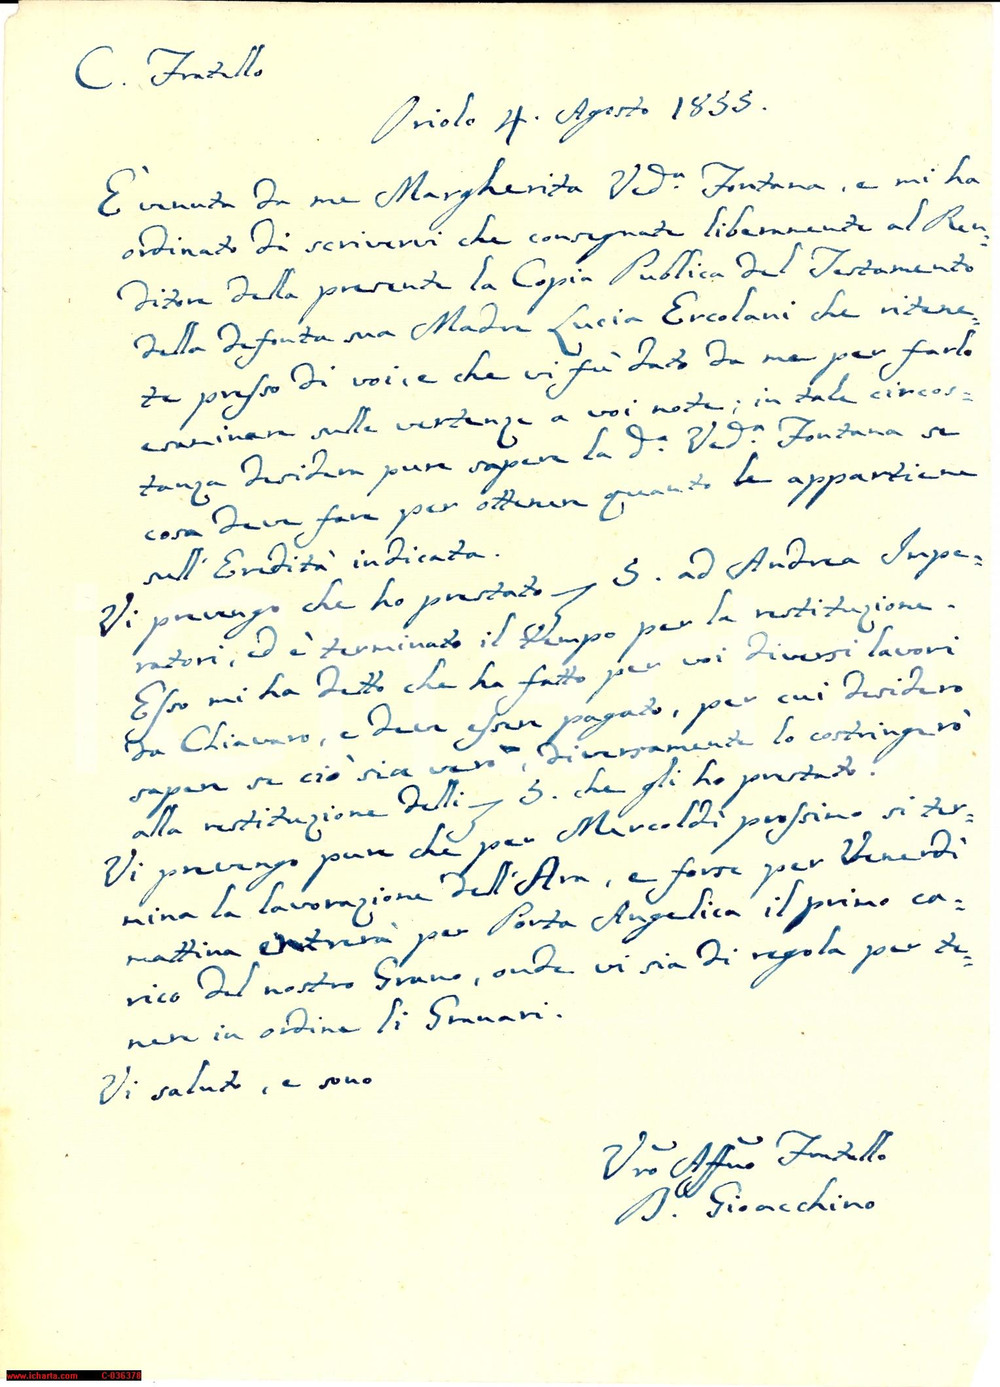 C. Fratello
Oriolo 4. Agosto 1855.
E' venuta da me Margherita Ved.a Fontana, e mi ha
ordinato di scrivervi che consegnate liberamente al Ren=
ditore della presente la Copia Publica del Testamento
della defonta sua Madre Lucia Ercolani che ritene=
te presso di voi, e che vi fù dato da me per farlo
esaminare sulle vertenze a voi note; in tale circos=
tanza desidera pure sapere la d.a Ved.a Fontana se
cosa deve fare per ottenere quanto le appartiene
sull' Eredità indicata.
Vi prevengo che ho prestato 5. ad Andrea Impe=
ratori, ed è terminato il tempo per la restituzione.
Esso mi ha detto che ha fatto per voi diversi lavori
da Chiavaro, e deve essere pagato, per cui desidero
sapere se ciò sia vero, diversamente lo costringerò
alla restituzione delli 5. che gli ho prestato.
Vi prevengo pure che per Mercoldì prossimo si ter=
mina la lavorazione dell' Ara, e forse per Venerdì
mattina entrerà per Porta Angelica il primo ca=
rico del nostro Grano, onde vi sia di regola per te=
nere in ordine li Granari.
Vi saluto, e sono
Vro Affmo Fratello
Gioacchino
www.icharta.com C-036378